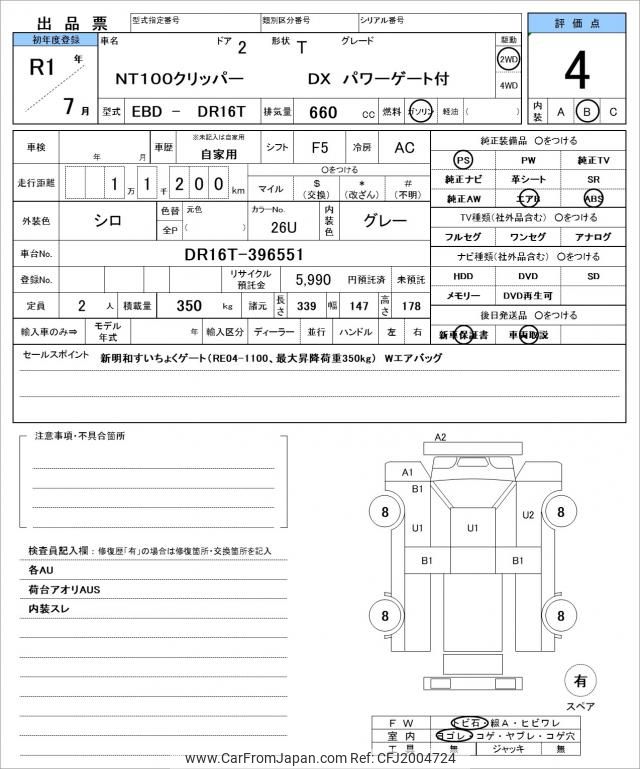 出品票 型式指定番号 類別区分番号 シリアル番号
評価点
初年度登録 車名 ドア 2 形状 T グレード 駆動
R1 年 7 月
NT100クリッパー DX パワーゲート付
2WD
4WD
4
型式 EBD - DR16T 排気量 660 cc 燃料 ガソリン 軽油 ( )
内装 A B C
車検 年 月 車歴 ※未記入は自家用 自家用 シフト F5 冷房 AC
走行距離 1 万 1 千 2 0 0 km
○をつける
マイル $ (交換) * (改ざん) # (不明)
外装色 シロ 色替 元色 全P ( ) カラーNo. 26U 内装色 グレー
車台No. DR16T-396551
登録No. リサイクル預託金 5,990 円預託済 未預託
定員 2 人 積載量 350 kg 諸元 長さ 339 幅 147 高さ 178
輸入車のみ⇒ モデル年式 年 輸入区分 ディーラー 並行 ハンドル 左 右
純正装備品 ○をつける
PS PW 純正TV
純正ナビ 革シート SR
純正AW エアB ABS
TV種類(社外品含む) ○をつける
フルセグ ワンセグ アナログ
ナビ種類(社外品含む) ○をつける
HDD DVD SD
メモリー DVD再生可
後日発送品 ○をつける
新車保証書 車両取説
セールスポイント 新明和すいちょくゲート(RE04-1100、最大昇降荷重350kg) Wエアバッグ
注意事項・不具合箇所
検査員記入欄:修復歴「有」の場合は修復箇所・交換箇所を記入
各AU
荷台アオリAUS
内装スレ
A2
A1
B1
8
8
U1
U1
U2
B1
B1
8
8
有
スペア
FW トビ石・線A・ヒビワレ
室内 ヨゴレ・コゲ・ヤブレ・コゲ穴
工具 無 ジャッキ 無
www.CarFromJapan.com Ref: CFJ2004724